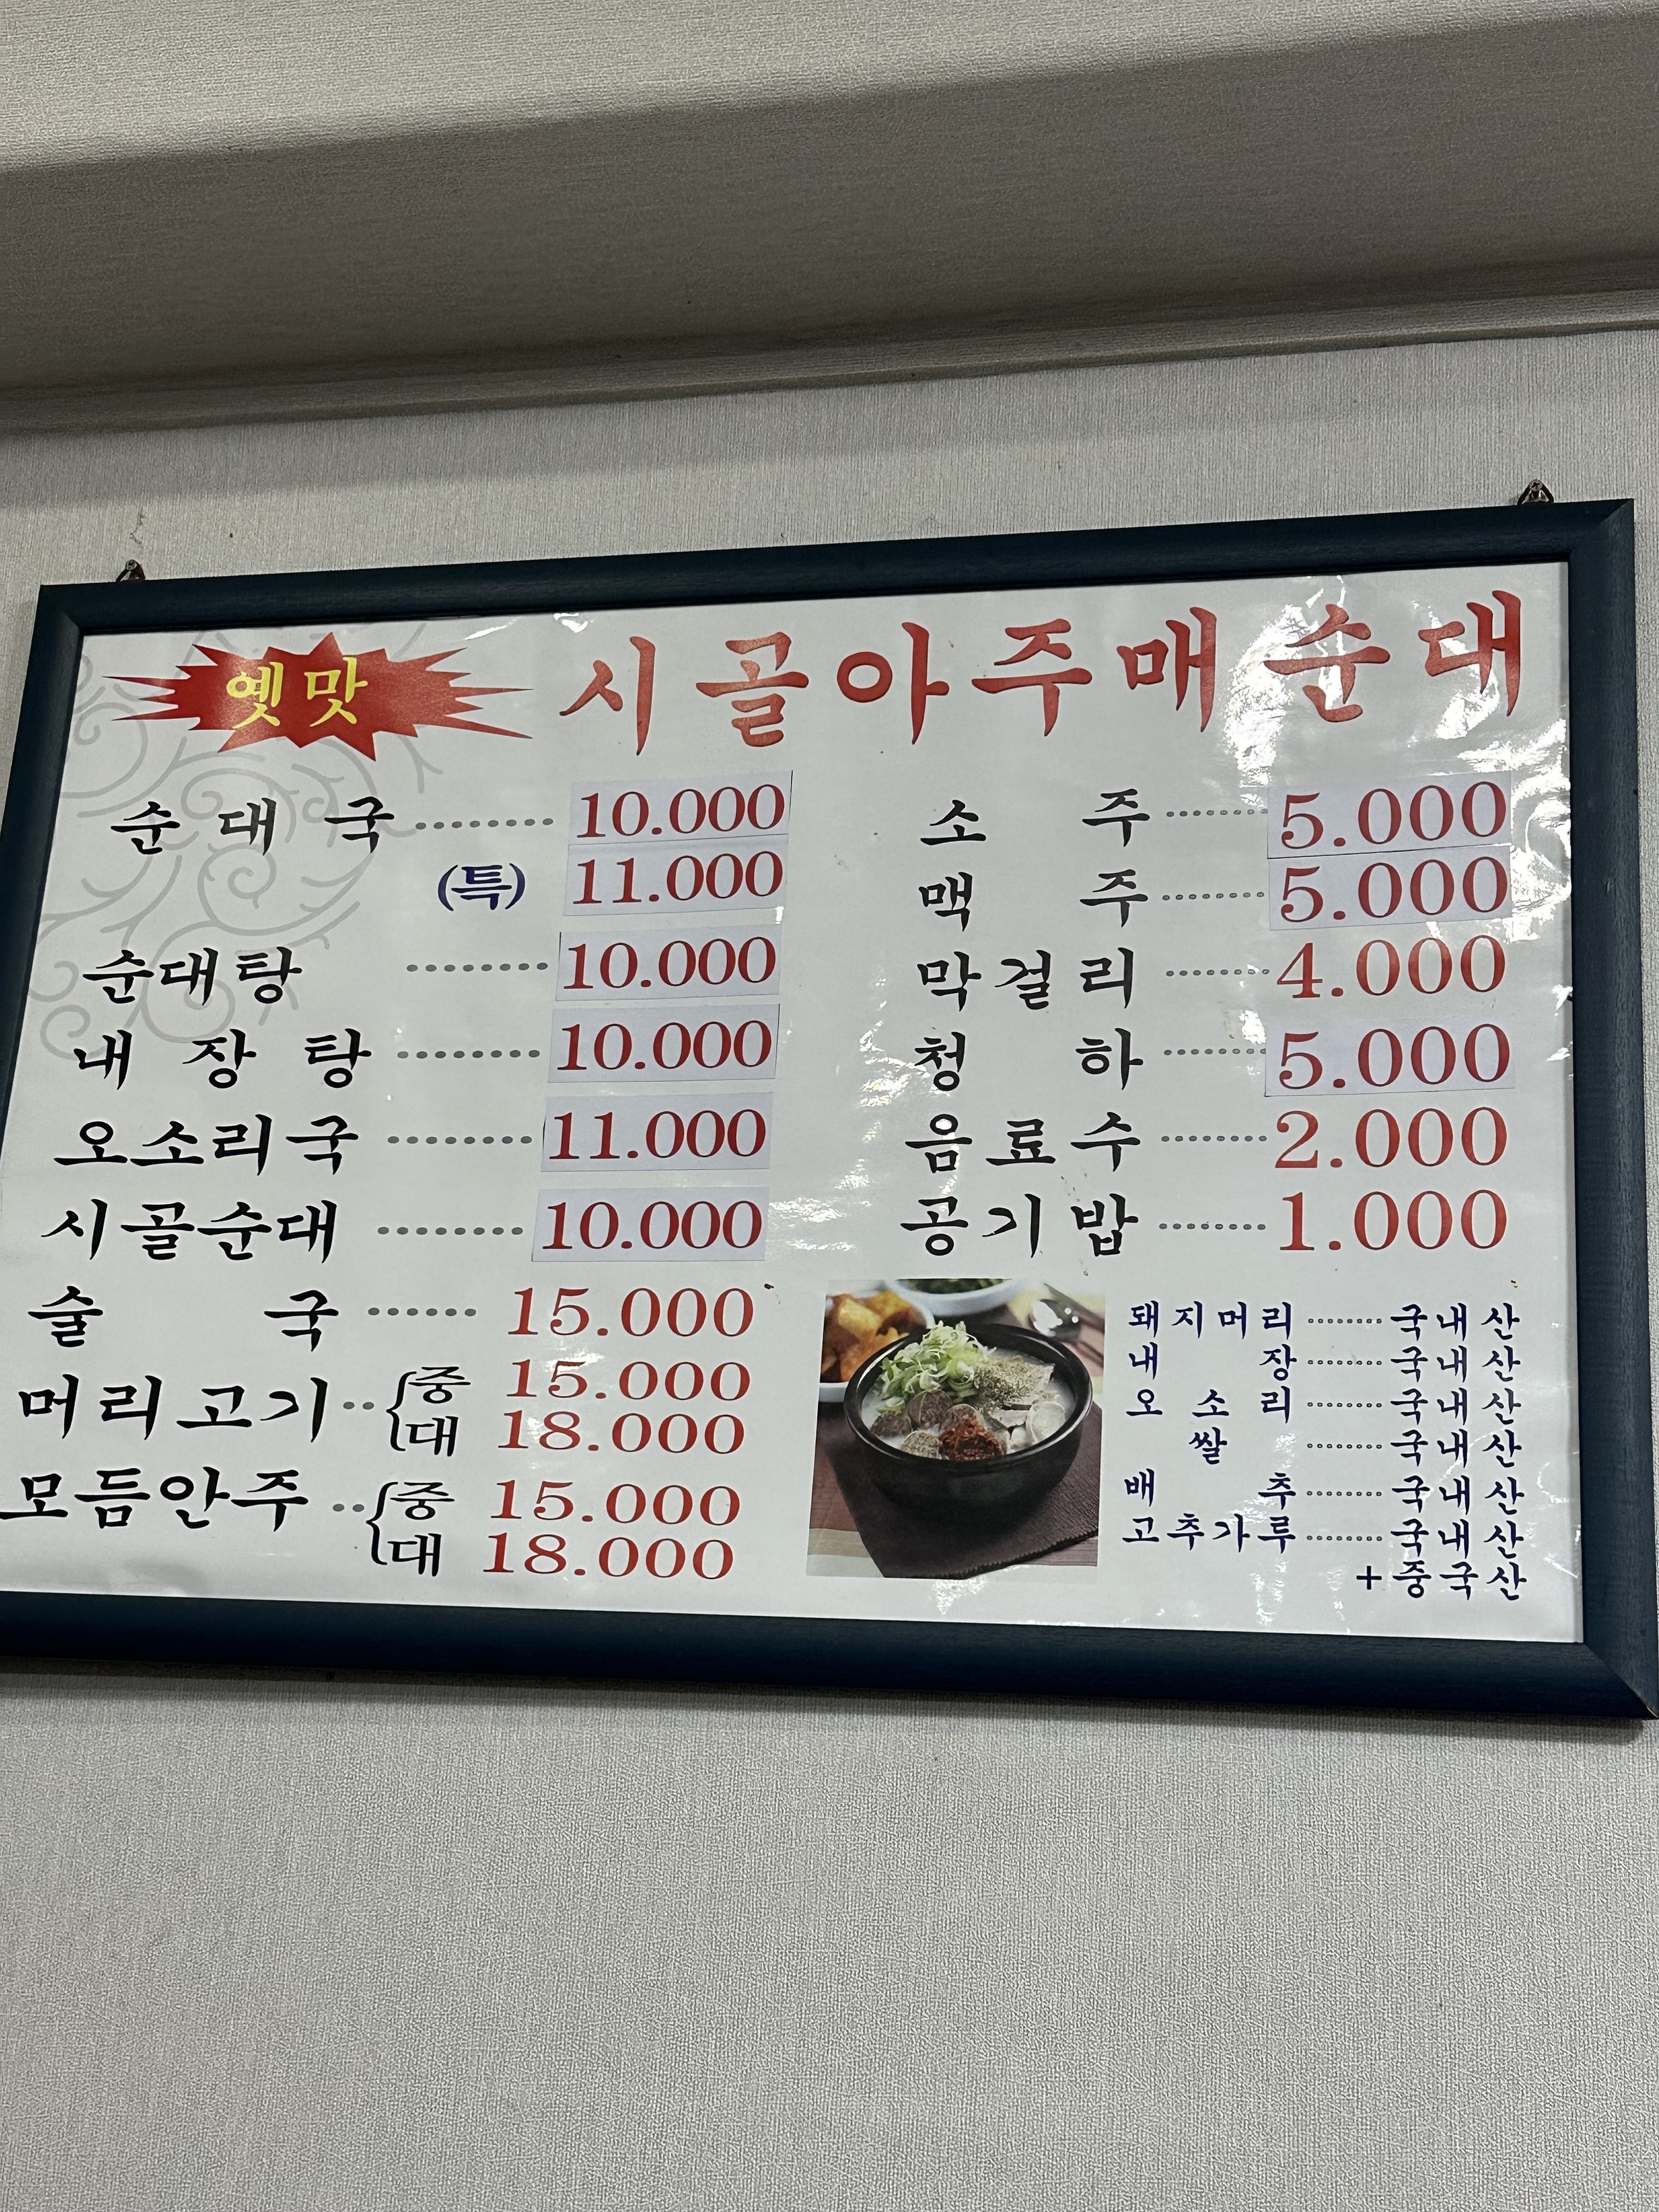 옛맛 시골아주매순대
순대국 ········ 10.000
(특) 11.000
순대탕 ········ 10.000
내장탕 ········ 10.000
오소리국 ········ 11.000
시골순대 ········ 10.000
술국 ······ 15.000
머리고기 ·· { 중 15.000
대 18.000
모듬안주 ·· { 중 15.000
대 18.000
소주 ········ 5.000
맥주 ········ 5.000
막걸리 ········ 4.000
청하 ········ 5.000
음료수 ········ 2.000
공기밥 ········ 1.000
돼지머리 ········ 국내산
내장 ········ 국내산
오소리 ········ 국내산
쌀 ········ 국내산
배추 ········ 국내산
고추가루 ········ 국내산
+중국산